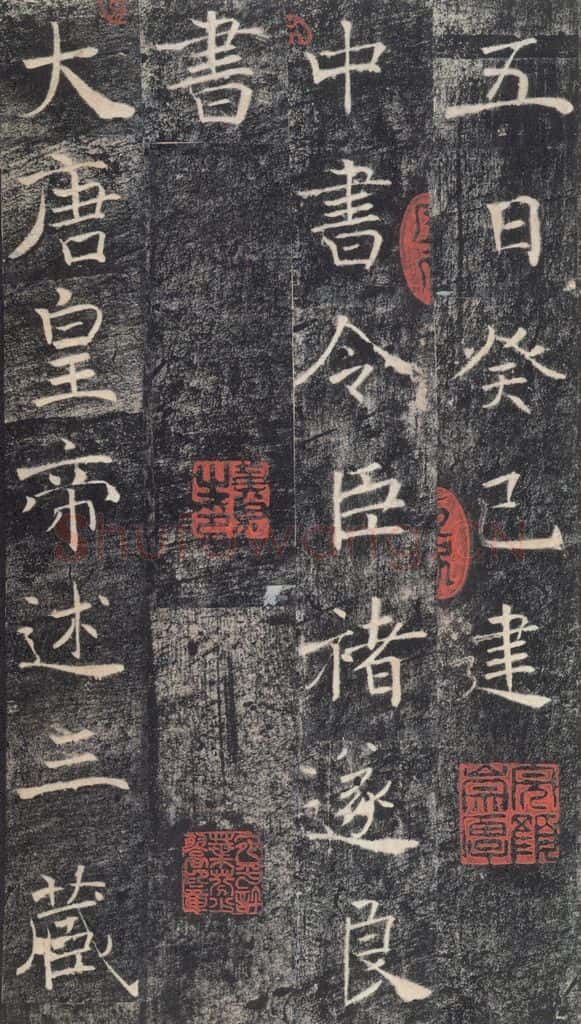 五日癸巳建
中書令臣褚遂良
書
大唐皇帝述三藏
shufawang.CN